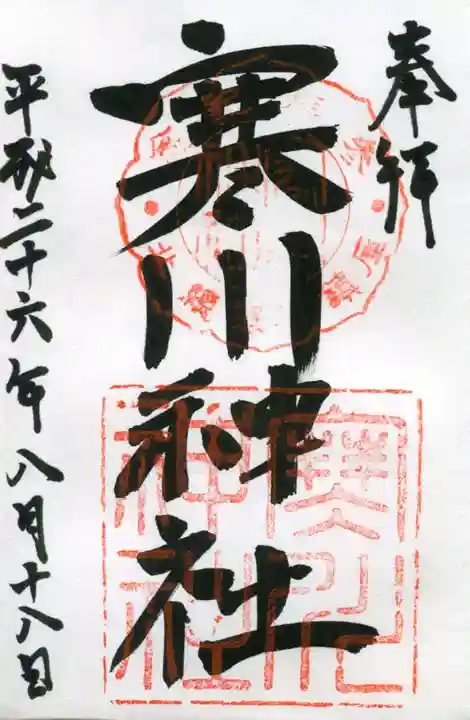 奉拝
寒川神社
平成二十六年八月十八日
寒川
神社